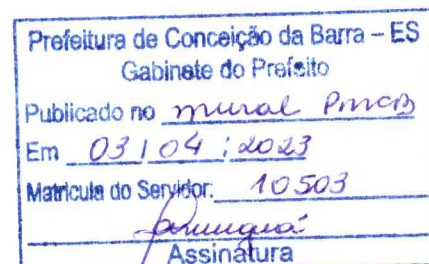 Prefeitura de Conceição da Barra – ES
Gabinete do Prefeito
Publicado no mural PMCB
Em 03 / 04 / 2023
Matricula do Servidor: 10503
Assinatura